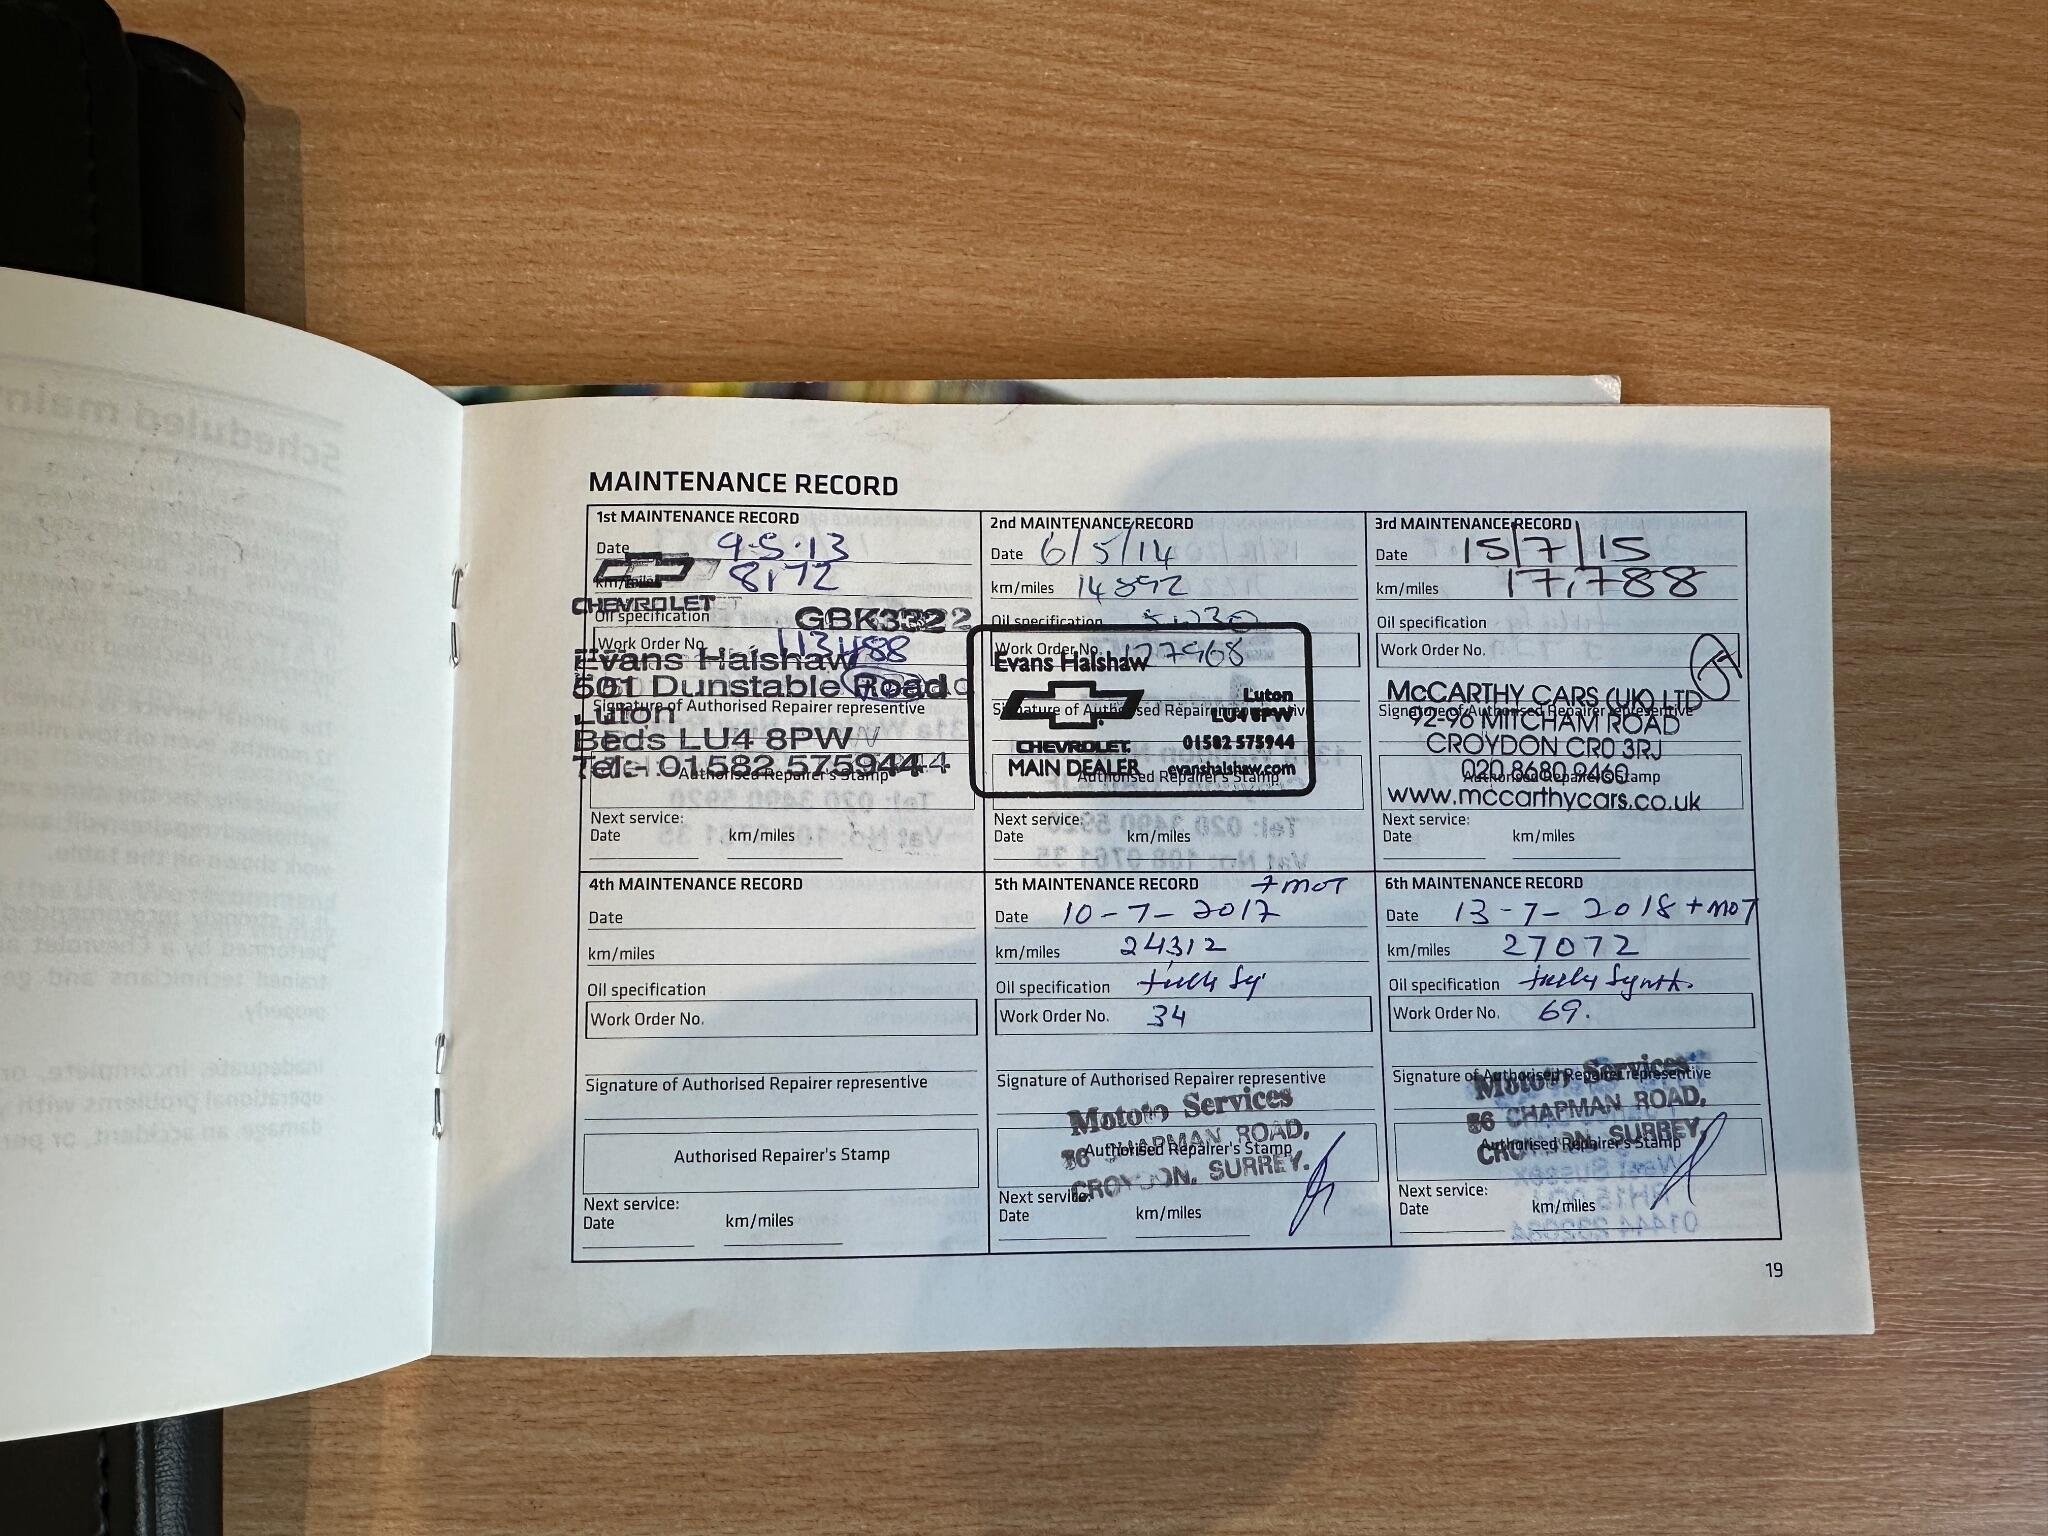 MAINTENANCE RECORD
1st MAINTENANCE RECORD
Date 9.5.13
km/miles 8,172
CHEVROLET
Oil specification
GBK3322
Work Order No. 113488
Evans Halshaw
501 Dunstable Road
Signature of Authorised Repairer representative
Luton
Beds LU4 8PW
Tel:- 01582 575944
Authorised Repairer's Stamp
Next service:
Date km/miles
2nd MAINTENANCE RECORD
Date 6/5/14
km/miles 14892
Oil specification
Work Order No. 127968
Evans Halshaw
Luton
Signature of Authorised Repairer representative
LU4 8PW
CHEVROLET 01582 575944
MAIN DEALER evanshalshaw.com
Authorised Repairer's Stamp
Next service:
Date km/miles
3rd MAINTENANCE RECORD
Date 15/7/15
km/miles 17,788
Oil specification
Work Order No.
McCARTHY CARS (UK) LTD
Signature of Authorised Repairer representative
92-96 MITCHAM ROAD
CROYDON CR0 3RJ
020 8680 9460
Authorised Repairer's Stamp
www.mccarthycars.co.uk
Next service:
Date km/miles
4th MAINTENANCE RECORD
Date
km/miles
Oil specification
Work Order No.
Signature of Authorised Repairer representative
Authorised Repairer's Stamp
Next service:
Date km/miles
5th MAINTENANCE RECORD + MOT
Date 10-7-2017
km/miles 24312
Oil specification fully sy
Work Order No. 34
Signature of Authorised Repairer representative
Mototo Services
86 CHAPMAN ROAD,
Authorised Repairer's Stamp
CROYDON, SURREY.
Next service:
Date km/miles
6th MAINTENANCE RECORD
Date 13-7-2018 + MOT
km/miles 27072
Oil specification fully synth.
Work Order No. 69.
Signature of Authorised Repairer representative
Mototo Services
86 CHAPMAN ROAD,
Authorised Repairer's Stamp
CROYDON, SURREY,
Next service:
Date km/miles
19